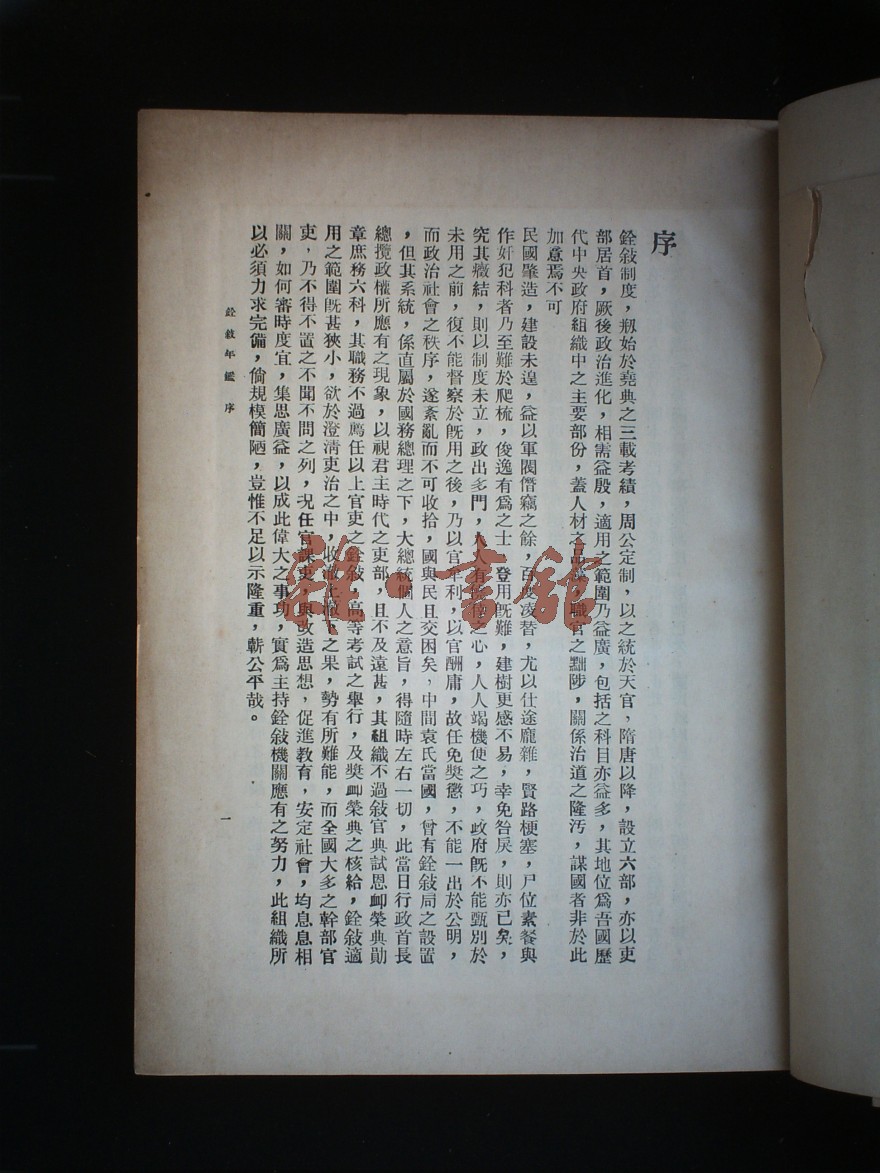 序
銓敍制度，剏始於堯典之三載考績，周公定制，以之統於天官，隋唐以降，設立六部，亦以吏
部居首，厥後政治進化，相需益殷，適用之範圍乃益廣，包括之科目亦益多，其地位爲吾國歷
代中央政府組織中之主要部份，蓋人材之品，職官之黜陟，關係治道之隆汚，謀國者非於此
加意焉不可
民國肇造，建設未遑，益以軍閥僭竊之餘，百度凌替，尤以仕途龐雜，賢路梗塞，尸位素餐與
作奸犯科者乃至難於爬梳，俊逸有爲之士，登用旣難，建樹更感不易，幸免咎戾，則亦已矣，
究其癥結，則以制度未立，政出多門，人人有之心，人人竭機便之巧，政府旣不能甄別於
未用之前，復不能督察於旣用之後，乃以官牟利，以官酬庸，故任免獎懲，不能一出於公明，
而政治社會之秩序，遂紊亂而不可收拾，國與民且交困矣，中間袁氏當國，曾有銓敍局之設置
，但其系統，係直屬於國務總理之下，大總統個人之意旨，得隨時左右一切，此當日行政首長
總攬政權所應有之現象，以視君主時代之吏部，且不及遠甚，其組織不過敍官典試恩卹榮典勛
章庶務六科，其職務不過薦任以上官吏之銓敍，高等考試之舉行，及獎卹榮典之核給，銓敍適
用之範圍旣甚狹小，欲於澄淸吏治之中，收激之果，勢有所難能，而全國大多之幹部官
吏，乃不得不置之不聞不問之列，况任官課吏，與改造思想，促進教育，安定社會，均息息相
關，如何審時度宜，集思廣益，以成此偉大之事功，實爲主持銓敍機關應有之努力，此組織所
以必須力求完備，倘規模簡陋，豈惟不足以示隆重，蘄公平哉。
銓敍年鑑　序
一
雜·書館